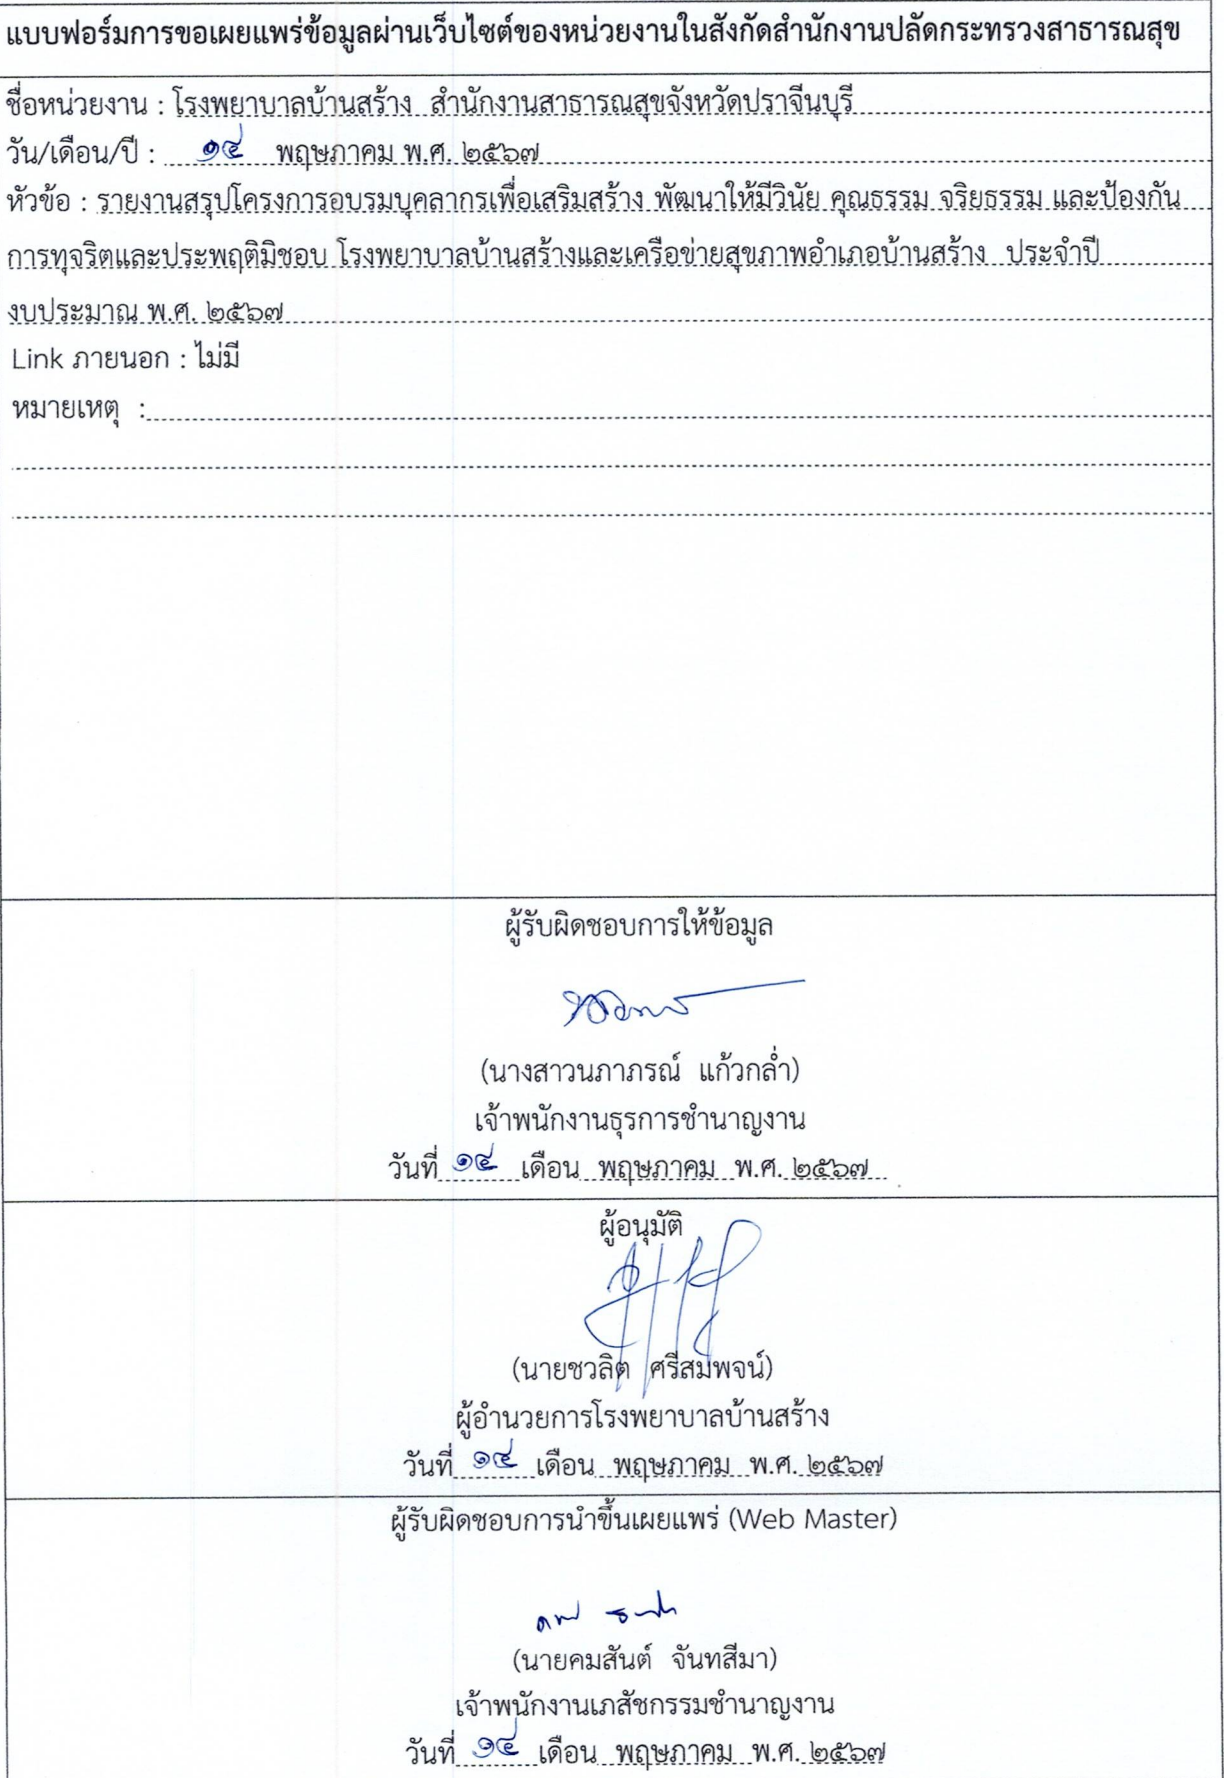 แบบฟอร์มการขอเผยแพร่ข้อมูลผ่านเว็บไซต์ของหน่วยงานในสังกัดสำนักงานปลัดกระทรวงสาธารณสุข
ชื่อหน่วยงาน : โรงพยาบาลบ้านสร้าง สำนักงานสาธารณสุขจังหวัดปราจีนบุรี
วัน/เดือน/ปี : ๑๔ พฤษภาคม พ.ศ. ๒๕๖๗
หัวข้อ : รายงานสรุปโครงการอบรมบุคลากรเพื่อเสริมสร้าง พัฒนาให้มีวินัย คุณธรรม จริยธรรม และป้องกัน
การทุจริตและประพฤติมิชอบ โรงพยาบาลบ้านสร้างและเครือข่ายสุขภาพอำเภอบ้านสร้าง ประจำปี
งบประมาณ พ.ศ. ๒๕๖๗
Link ภายนอก : ไม่มี
หมายเหตุ :
ผู้รับผิดชอบการให้ข้อมูล
(นางสาวนภาภรณ์ แก้วกล่ำ)
เจ้าพนักงานธุรการชำนาญงาน
วันที่ ๑๔ เดือน พฤษภาคม พ.ศ. ๒๕๖๗
ผู้อนุมัติ
(นายชวลิต ศรีสมพจน์)
ผู้อำนวยการโรงพยาบาลบ้านสร้าง
วันที่ ๑๔ เดือน พฤษภาคม พ.ศ. ๒๕๖๗
ผู้รับผิดชอบการนำขึ้นเผยแพร่ (Web Master)
(นายคมสันต์ จันทสีมา)
เจ้าพนักงานเภสัชกรรมชำนาญงาน
วันที่ ๑๔ เดือน พฤษภาคม พ.ศ. ๒๕๖๗